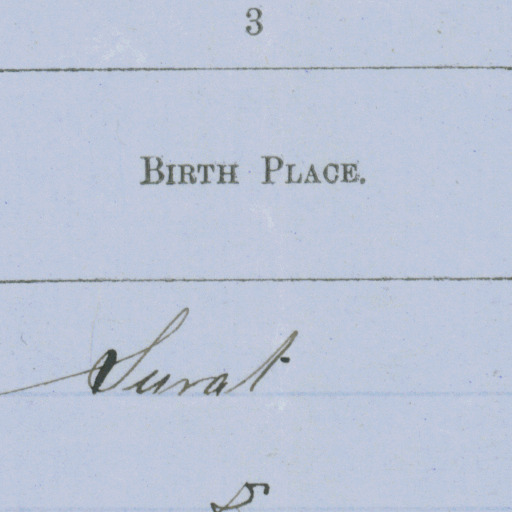 3
BIRTH PLACE.
Surat